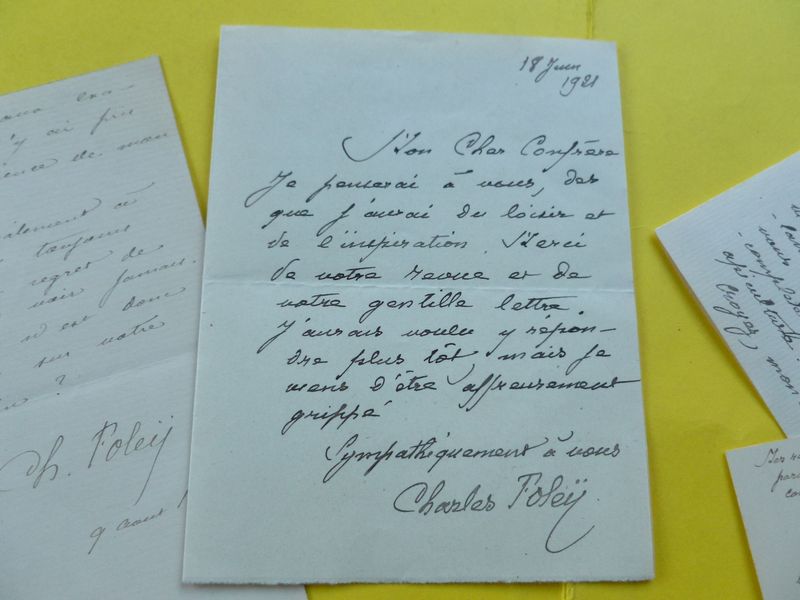 18 Juin
1921
Mon Cher Confrère
Je penserai à vous, des
que j'aurai du loisir et
de l'inspiration. Merci
de votre revue et de
votre gentille lettre.
J'aurais voulu y répon-
dre plus tôt, mais je
viens d'être affreusement
grippé
Sympathiquement à vous
Charles Foleÿ
j'y ai pris
de mon
à
toujours
regret de
voir jamais.
est donc
sur votre
?
Ch. Foleÿ
9 aout
vous
complète
Croyez, mon